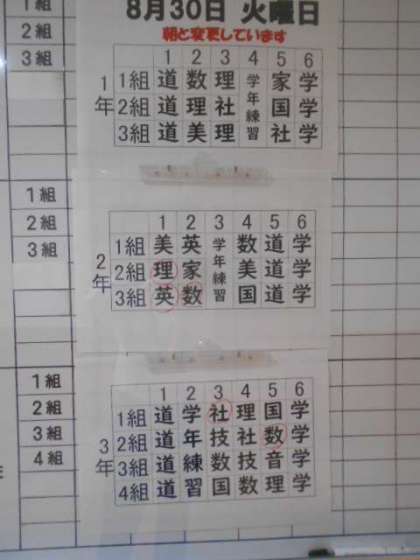 8月30日 火曜日
朝と変更しています
1 2 3 4 5 6
1年
1組 道 数 理 学年練習 家 学
2組 道 理 社 国 学
3組 道 美 理 社 学
1 2 3 4 5 6
2年
1組 美 英 学年練習 数 道 学
2組 理 家 美 道 学
3組 英 数 国 道 学
1 2 3 4 5 6
3年
1組 道 学年練習 社 理 国 学
2組 道 技 社 数 学
3組 道 数 技 音 学
4組 道 国 数 理 学
1組
2組
3組
1組
2組
3組
1組
2組
3組
4組